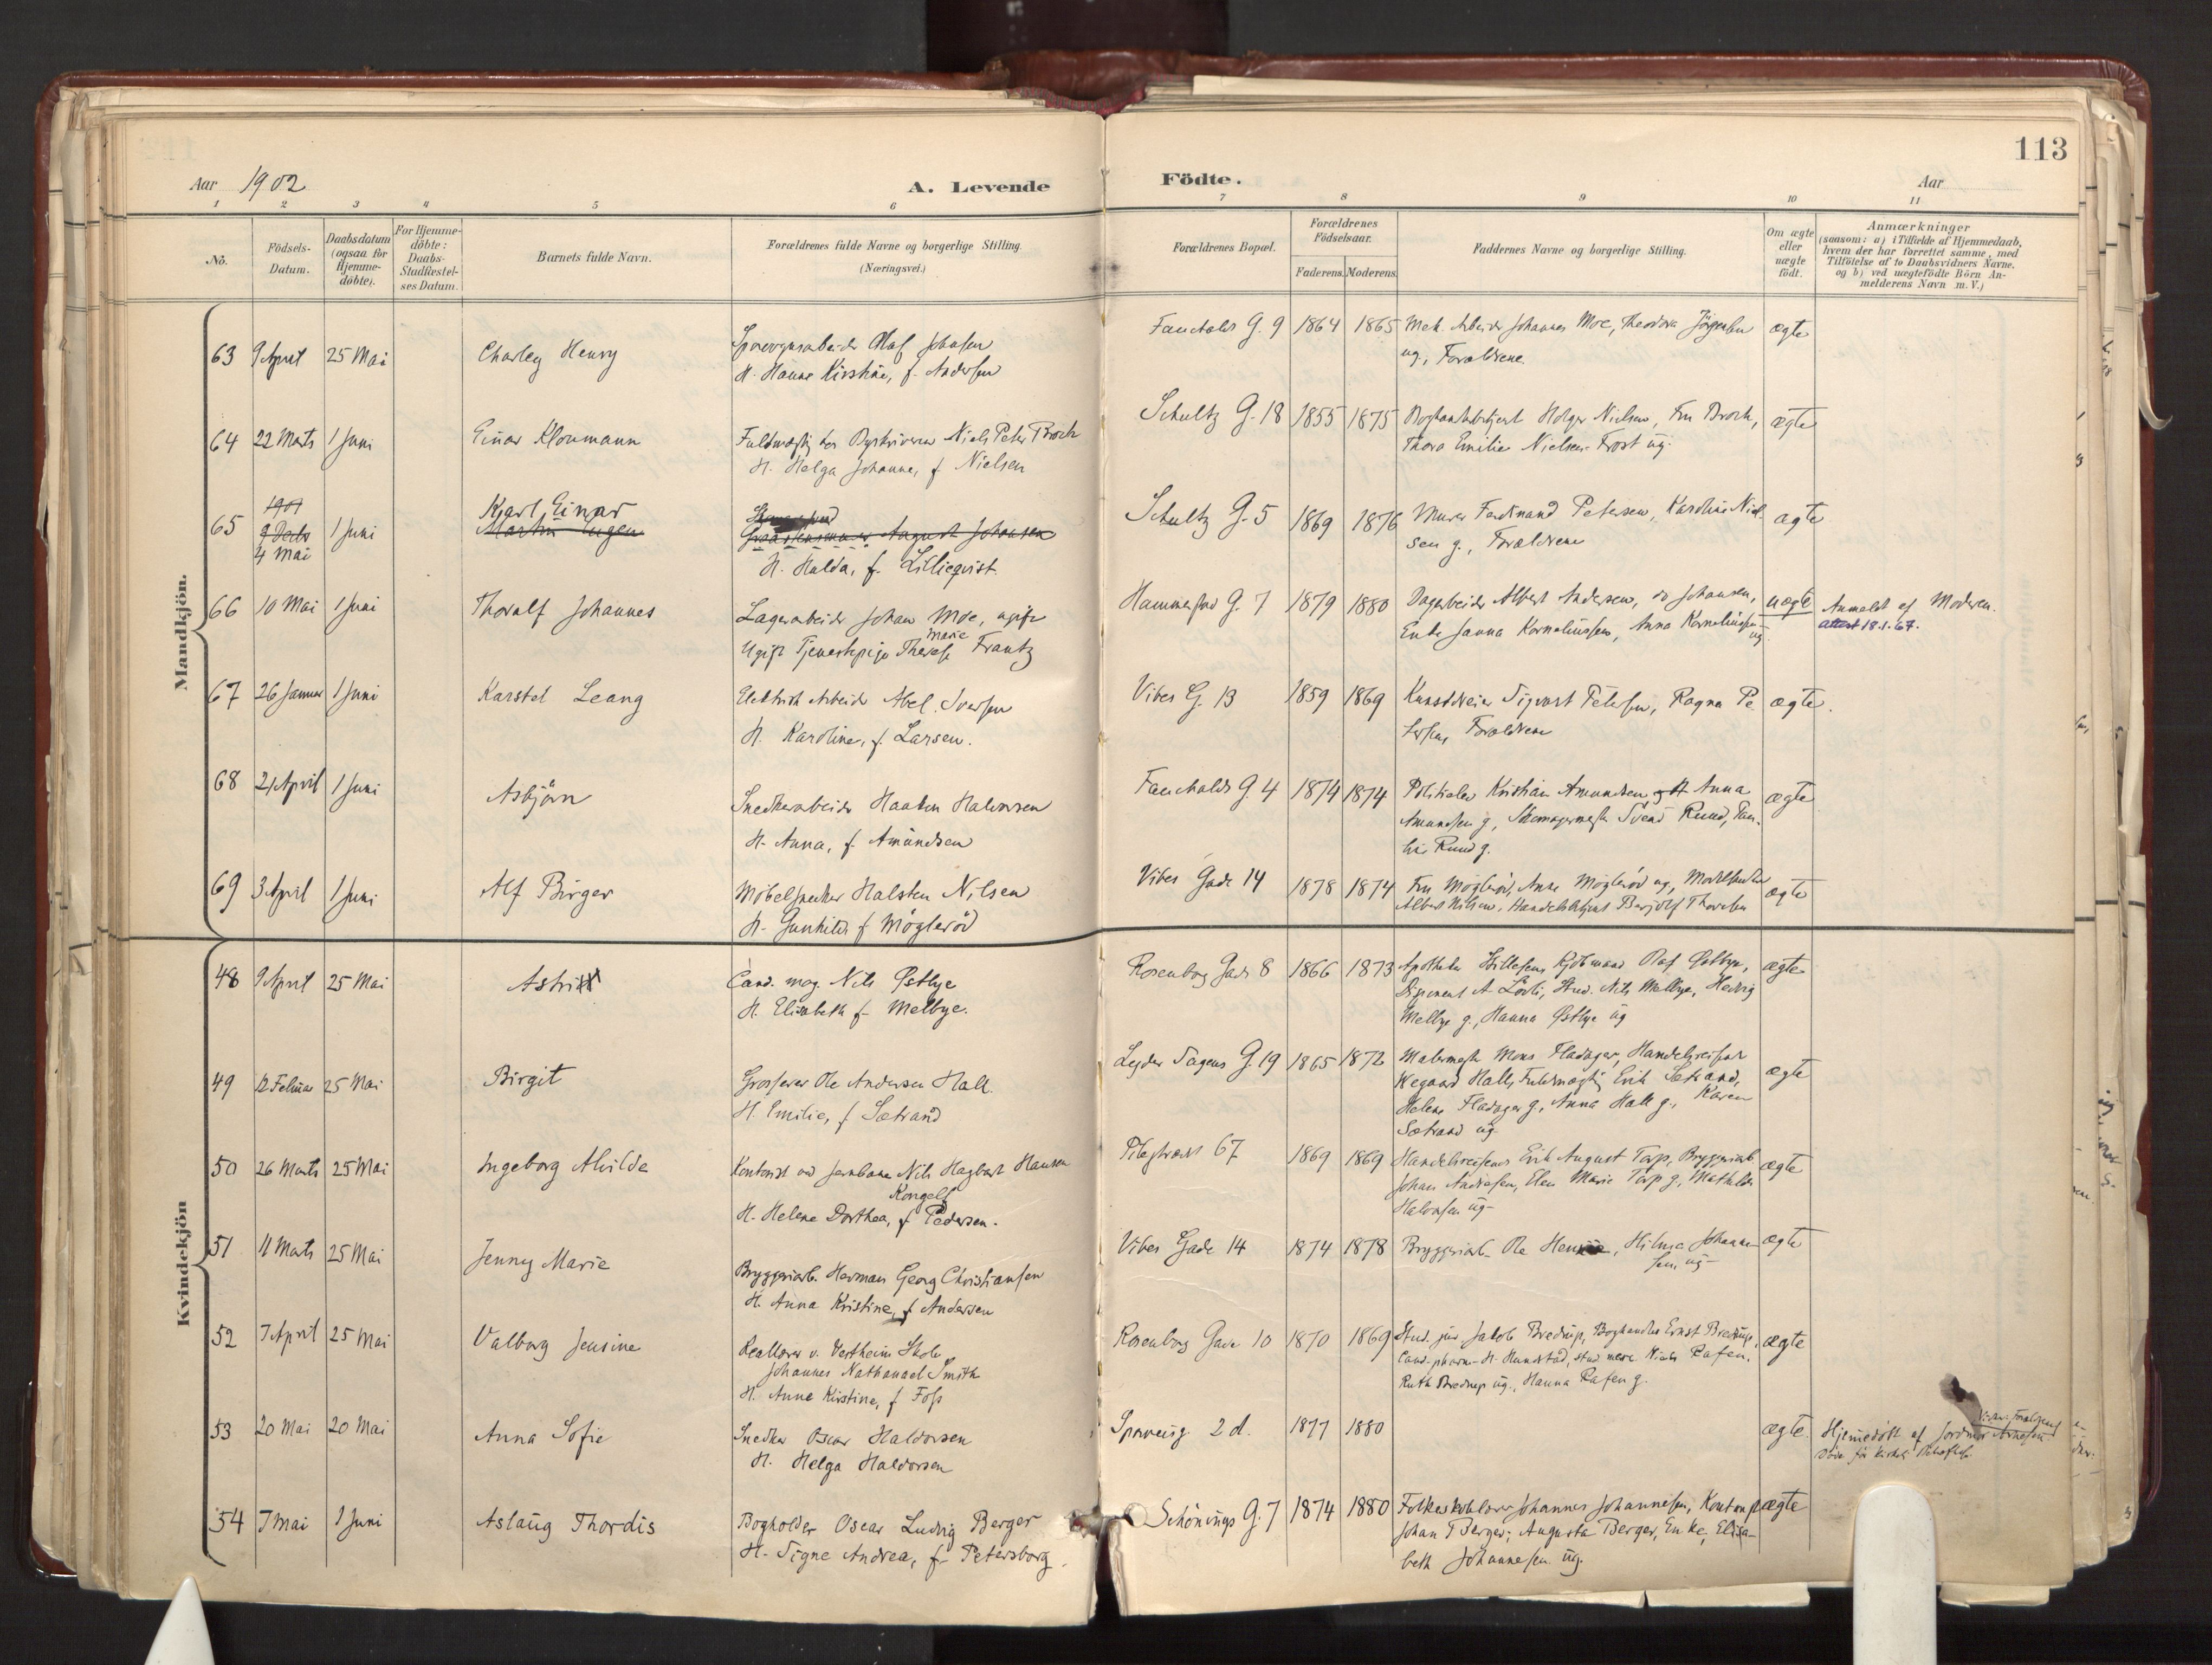 113
Aar 1902
A. Levende
Födte.
Aar
1 2 3 4 5 6 7 8 9 10 11
No.
Födsels-
Datum.
Daabsdatum
(ogsaa for
Hjemme-
döbte).
For Hjemme-
döbte:
Daabs-
Stadfæstel-
ses Datum.
Barnets fulde Navn.
Forældrenes fulde Navne og borgerlige Stilling.
(Næringsvei.)
Forældrenes Bopæl.
Forældrenes
Födselsaar.
Faderens. Moderens.
Faddernes Navne og borgerlige Stilling.
Om ægte
eller
uægte
födt.
Anmærkninger
(saasom: a) i Tilfælde af Hjemmedaab,
hvem der har forrettet samme, med
Tilföielse af to Daabsvidners Navne.
og b) ved uægtefödte Börn An-
melderens Navn m. V.)
Mandkjön.
63 9 April 25 Mai Charley Henry
Olaf Johnsen
H. Hanne Kirstine, f. Andersen
G. 9 1864 1865 Mek. Arbeider Johannes Moe, Theodora
ug., Forældrene
ægte
64 22 Marts 1 Juni Einar Kloumann
Niels Peter Broch
H. Helga Johanne, f Nielsen
Schultz G. 18 1855 1875 Holger Nielsen, Fru Broch,
Thora Emilie Nielsen. Frost ug.
ægte
65 1901
9 Decbr
4 Mai
1 Juni
Karl Einar
Martin Eugen
August Johansen
H. Hulda, f. Lilliequist.
Schultz G. 5 1869 1876 Murer Ferdinand Petersen, Karoline Niel-
sen g., Forældrene
ægte
66 10 Mai 1 Juni Thoralf Johannes
Lagerarbeider Johan Moe, ugift
Ugift Tjenestepige Therese Marie Frantz
Hammerfest G. 7 1879 1880 Dagarbeider Albert Andersen, Johansen,
Enke Janna Korneliussen, Anna Korneliussen
ug.
uægte
Anmeldt af Moderen.
attest 18.1.67.
67 26 Januar 1 Juni Karstel Leang
Elektrisk Arbeider Abel Iversen
H. Karoline, f. Larsen.
Vibes G. 13 1859 1869 Sigvart Petersen, Ragna Pe
tersen, Forældrene
ægte.
68 21 April 1 Juni Asbjörn
Snedkerarbeider Haaken Halvorsen
H. Anna, f. Amundsen
G. 4 1874 1874 Kristian Amundsen og H Anna
Amundsen g., Skomagermester Svend Ruud,
Ruud g.
ægte
69 3 April 1 Juni Alf Birger
Möbelsnedker Halsten Nilsen
H. Gunhild f Mögleröd
Vibes Gade 14 1878 1874 Fru Möglerød, Anna Möglerød ug,
Albert Nilsen, Handelsbetjent Thoralsen
ægte
Kvindekjön
48 9 April 25 Mai Astri
Cand. mag. Nils Østbye
H. Elisabeth f. Melbye.
Rosenborg Gade 8 1866 1873 Apotheker Kjöbmand Olaf Østbye,
Disponent A Stud. Nils Melbye, Hedvig
Melbye g., Hanna Østbye ug
ægte
49 12 Februar 25 Mai Birgit
Grosserer Ole Andersen Hall
H. Emilie, f Sætrand
Lyder Sagens G. 19 1865 1872 Malermester Mons Fladager, Handelsreisende
Hall, Fuldmægtig Erik Sætrand,
Helene Fladager g., Anna Hall g., Karen
Sætrand ug
ægte
50 26 Marts 25 Mai Ingeborg Alvilde
Kontorist ved Jernbane Nils Hagbart Hansen
Kongelf
H. Helene Dorthea, f Pedersen.
Pilestræde 67 1869 1869 Handelsreisende Erik August Tarp, Bryggeriarb
Johan Andresen, Elen Marie Tarp g, Mathilde
Halvorsen ug
ægte
51 11 Marts 25 Mai Jenny Marie
Bryggeriarb. Herman Georg Christiansen
H. Anna Kristine, f Andersen
Vibes Gade 14 1874 1878 Bryggeriarb. Ole Hilma Johanne
sen, ug
ægte
52 7 April 25 Mai Valborg Jensine
Reallærer v. Vestheim Skole
Johannes Nathanael Smith
H. Anne Kirstine, f Foss
Rosenborg Gade 10 1870 1869 Stud. jur. Jakob Bredrup, Boghandler Ernst Bredrup,
Cand. pharm. H. Hunstad, stud med. Niels Rafen,
Ruth Bredrup ug., Hanna Rafen g.
ægte
53 20 Mai 20 Mai Anna Sofie
Snedker Oscar Haldorsen
H. Helga Haldorsen
Sporveisg 2 d. 1877 1880
ægte.
Hjemmedöbt af Jordmor Arnesen
54 7 Mai 1 Juni Aslaug Thordis
Bogholder Oscar Ludvig Berger
H. Signe Andrea, f. Petersborg.
Schönings G. 7 1874 1880 Folkeskolelærer Johannes Johannesen,
Johan Berger, Augusta Berger, Enke, Elisa-
beth Johannesen ug.
ægte